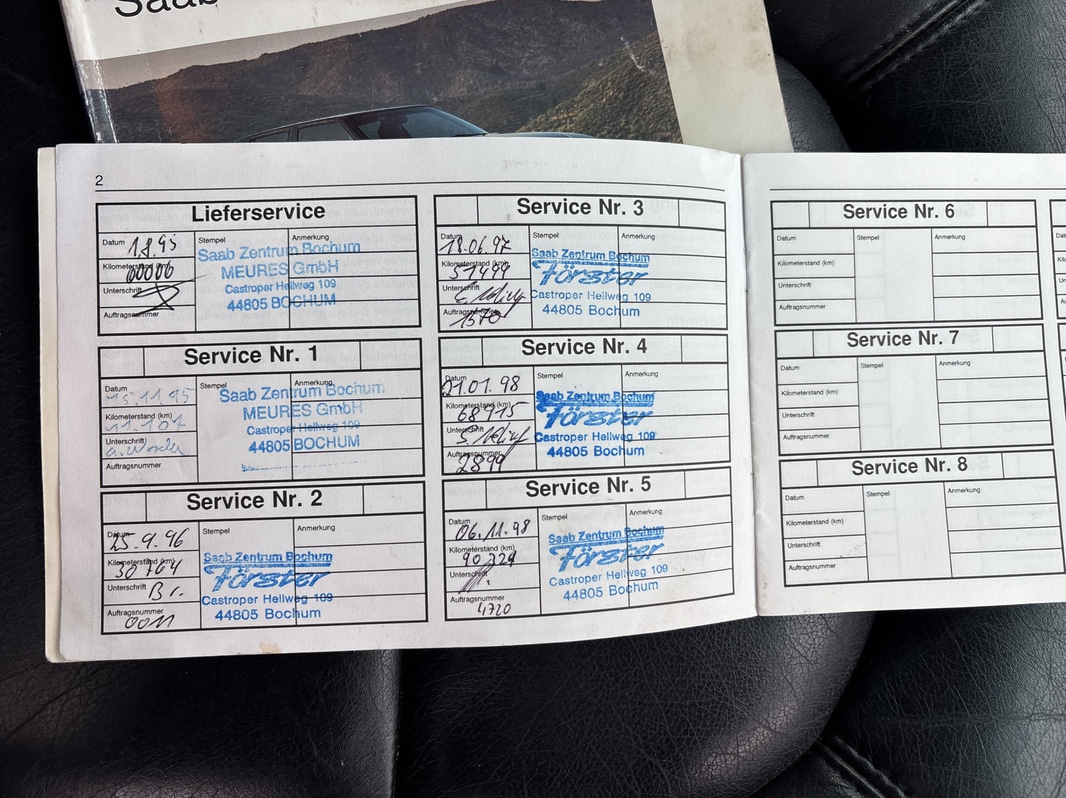 Saab
2
Lieferservice
Datum 1.8.95
Stempel
Anmerkung
Kilometerstand 00006
Unterschrift
Auftragsnummer
Saab Zentrum Bochum
MEURES GmbH
Castroper Hellweg 109
44805 BOCHUM
Service Nr. 1
Datum 15.11.95
Stempel
Anmerkung
Kilometerstand (km)
Unterschrift
Auftragsnummer
Saab Zentrum Bochum
MEURES GmbH
Castroper Hellweg 109
44805 BOCHUM
Service Nr. 2
Datum 25.9.96
Stempel
Anmerkung
Kilometerstand (km) 30764
Unterschrift Br.
Auftragsnummer
0011
Saab Zentrum Bochum
Förster
Castroper Hellweg 109
44805 Bochum
Service Nr. 3
Datum
18.06.97
Stempel
Anmerkung
Kilometerstand (km)
51499
Unterschrift
Auftragsnummer
1570
Saab Zentrum Bochum
Förster
Castroper Hellweg 109
44805 Bochum
Service Nr. 4
Datum
21.01.98
Stempel
Anmerkung
Kilometerstand (km)
68915
Unterschrift
Auftragsnummer
2899
Saab Zentrum Bochum
Förster
Castroper Hellweg 109
44805 Bochum
Service Nr. 5
Datum
06.11.98
Stempel
Anmerkung
Kilometerstand (km)
90329
Unterschrift
Auftragsnummer
4720
Saab Zentrum Bochum
Förster
Castroper Hellweg 109
44805 Bochum
Service Nr. 6
Datum
Stempel
Anmerkung
Kilometerstand (km)
Unterschrift
Auftragsnummer
Service Nr. 7
Datum
Stempel
Anmerkung
Kilometerstand (km)
Unterschrift
Auftragsnummer
Service Nr. 8
Datum
Stempel
Anmerkung
Kilometerstand (km)
Unterschrift
Auftragsnummer